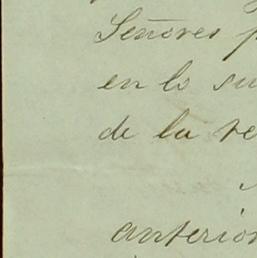 Señores p
en lo su
de la re
anterior